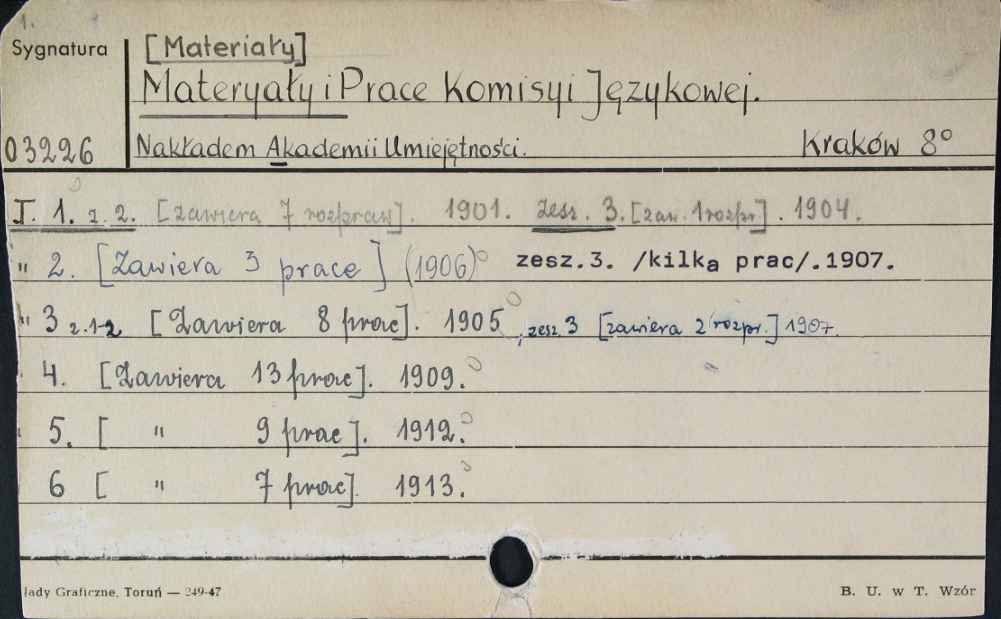 1.
Sygnatura [Materiały]
Materyały i Prace Komisyi Językowej.
03226 Nakładem Akademii Umiejętności. Kraków 8°
I. 1. z. 2. [zawiera 7 rozpraw]. 1901. Zesz. 3. [zaw. 1 rozpr.]. 1904.
" 2. [Zawiera 3 prace] (1906) zesz.3. /kilka prac/.1907.
" 3 z. 1-2 [Zawiera 8 prac]. 1905, zesz. 3 [zawiera 2 rozpr.] 1907.
4. [Zawiera 13 prac]. 1909.
5. [ " 9 prac]. 1912.
6 [ " 7 prac]. 1913.
łady Graficzne, Toruń — 249-47 B. U. w T. Wzór